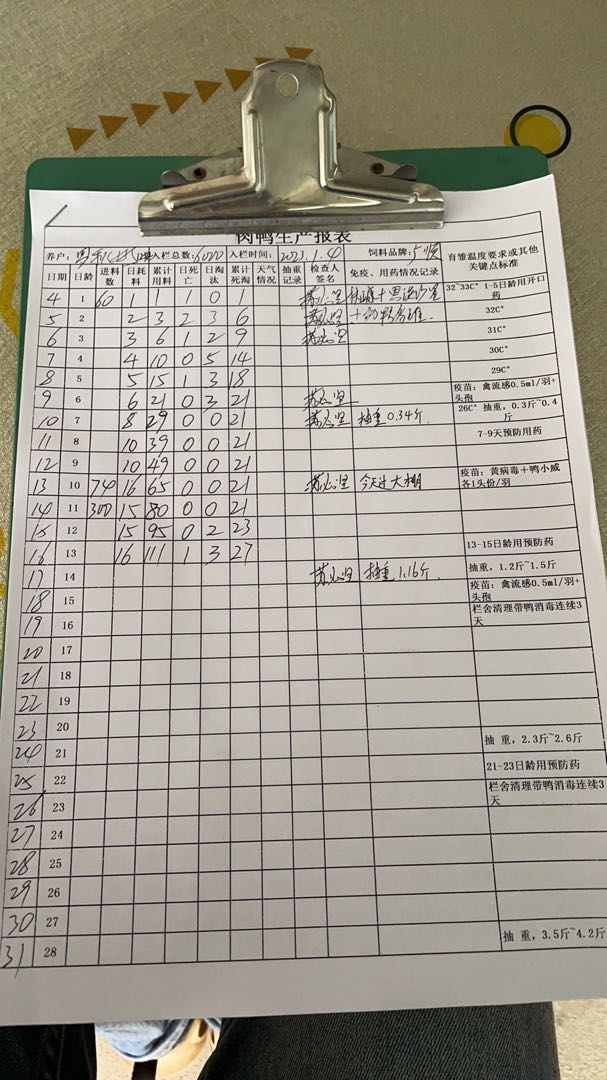 肉鸭生产报表
养户: 入栏总数:6000 入栏时间:2023.1.4 饲料品牌: 育雏温度要求或其他关键点标准
日期 日龄 进料数 日耗料 累计用料 日死亡 日淘汰 累计死淘 天气情况 抽重记录 检查人签名 免疫、用药情况记录
4 1 60 1 1 1 0 1 32~33C° 1-5日龄用开口药
5 2 2 3 2 3 6 32C°
6 3 3 6 1 2 9 31C°
7 4 4 10 0 5 14 30C°
8 5 5 15 1 3 18 29C°
9 6 6 21 0 3 21 疫苗:禽流感0.5ml/羽+头孢
10 7 8 29 0 0 21 抽重0.34斤. 26C° 抽重,0.3斤~0.4斤
11 8 10 39 0 0 21 7-9天预防用药
12 9 10 49 0 0 21
13 10 740 16 65 0 0 21 今天过大棚 疫苗:黄病毒+鸭小威各1头份/羽
14 11 300 15 80 0 0 21
15 12 15 95 0 2 23
16 13 16 111 1 3 27 13-15日龄用预防药
17 14 抽重1.16斤. 抽重,1.2斤~1.5斤
18 15 疫苗:禽流感0.5ml/羽+头孢
19 16 栏舍清理带鸭消毒连续3天
20 17
21 18
22 19
23 20
24 21 抽 重,2.3斤~2.6斤
25 22 21-23日龄用预防药
26 23 栏舍清理带鸭消毒连续3天
27 24
28 25
29 26
30 27
31 28 抽 重,3.5斤~4.2斤